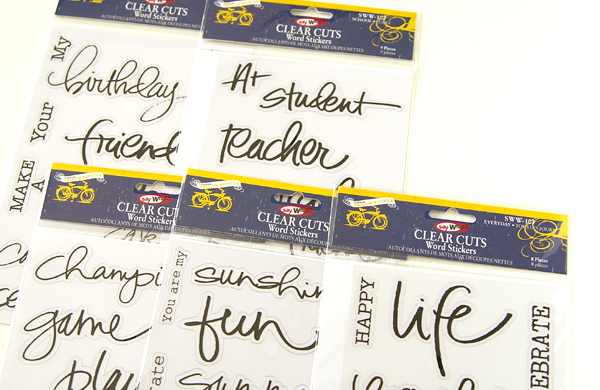 CLEAR CUTS
Word Stickers
AUTOCOLLANTS DE MOTS AUX DÉCOUPES NETTES
My
birthday
Your
friend
MAKE A
CLEAR CUTS
Word Stickers
AUTOCOLLANTS DE MOTS AUX DÉCOUPES NETTES
SWW-102
8 Pieces
8 pièces
A+ student
teacher
CLEAR CUTS
Word Stickers
AUTOCOLLANTS DE MOTS AUX DÉCOUPES NETTES
Champi
game
play
CLEAR CUTS
Word Stickers
AUTOCOLLANTS DE MOTS AUX DÉCOUPES NETTES
You are my
sunshin
fun
CLEAR CUTS
Word Stickers
AUTOCOLLANTS DE MOTS AUX DÉCOUPES NETTES
EVERYDAY • TOUS LES JOURS
8 Pieces
8 pièces
HAPPY
life
EBRATE